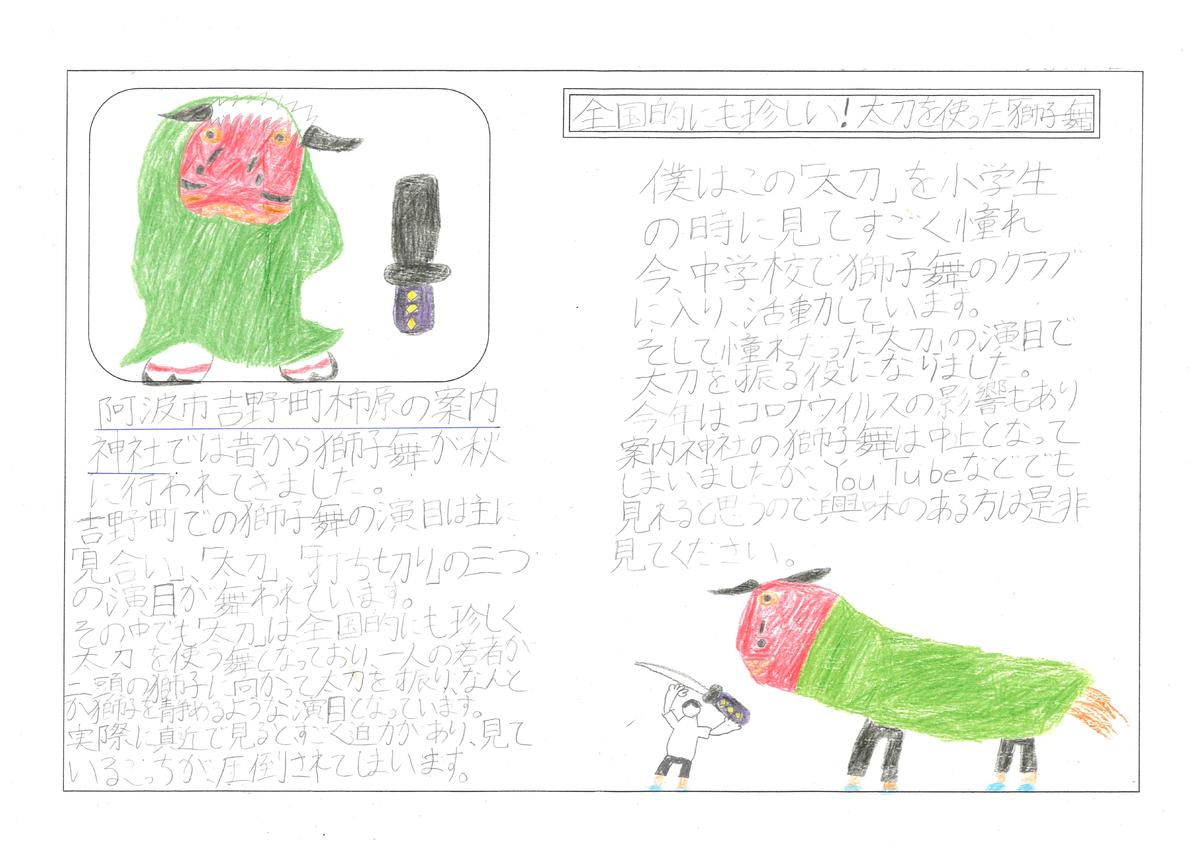 全国的にも珍しい!太刀を使った獅子舞
阿波市吉野町柿原の案内
神社では昔から獅子舞が秋
に行われてきました。
吉野町での獅子舞の演目は主に
「見合い」、「太刀」「打ち切り」の三つ
の演目が舞われています。
その中でも「太刀」は全国的にも珍しく
太刀を使う舞となっており、一人の若者が
二頭の獅子に向かって太刀を振り、なんと
か獅子を静めるような演目となっています。
実際に真近で見るとすごく迫力があり、見て
いるこっちが、圧倒されてしまいます。
僕はこの「太刀」を小学生
の時に見てすごく憧れ
今、中学校で獅子舞のクラブ
に入り、活動しています。
そして憧れだった「太刀」の演目で
太刀を振る役になりました。
今年はコロナウイルスの影響もあり
案内神社の獅子舞は中止となって
しまいましたが、YouTubeなどでも
見れると思うので興味のある方は是非
見てください。